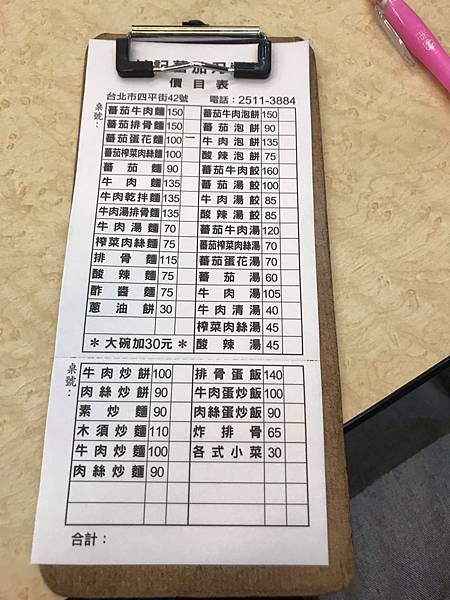 記蕃茄
價目表
台北市四平街42號 電話：2511-3884
桌號：
蕃茄牛肉麵 150
蕃茄排骨麵 150
蕃茄蛋花麵 100 一
蕃茄榨菜肉絲麵 100
蕃茄麵 90
牛肉麵 135
牛肉乾拌麵 135
牛肉湯排骨麵 135
牛肉湯麵 70
榨菜肉絲麵 75
排骨麵 115
酸辣麵 75
酢醬麵 75
蔥油餅 30
＊大碗加30元＊
蕃茄牛肉泡餅 150
蕃茄泡餅 90
牛肉泡餅 135
酸辣泡餅 75
蕃茄牛肉餃 160
蕃茄湯餃 100
牛肉湯餃 85
酸辣湯餃 85
蕃茄牛肉湯 120
蕃茄榨菜肉絲湯 70
蕃茄蛋花湯 70
蕃茄湯 60
牛肉湯 105
牛肉清湯 40
榨菜肉絲湯 45
酸辣湯 45
桌號：
牛肉炒餅 100
肉絲炒餅 90
素炒麵 90
木須炒麵 110
牛肉炒麵 100
肉絲炒麵 90
排骨蛋飯 140
牛肉蛋炒飯 100
肉絲蛋炒飯 90
炸排骨 65
各式小菜 30
合計：